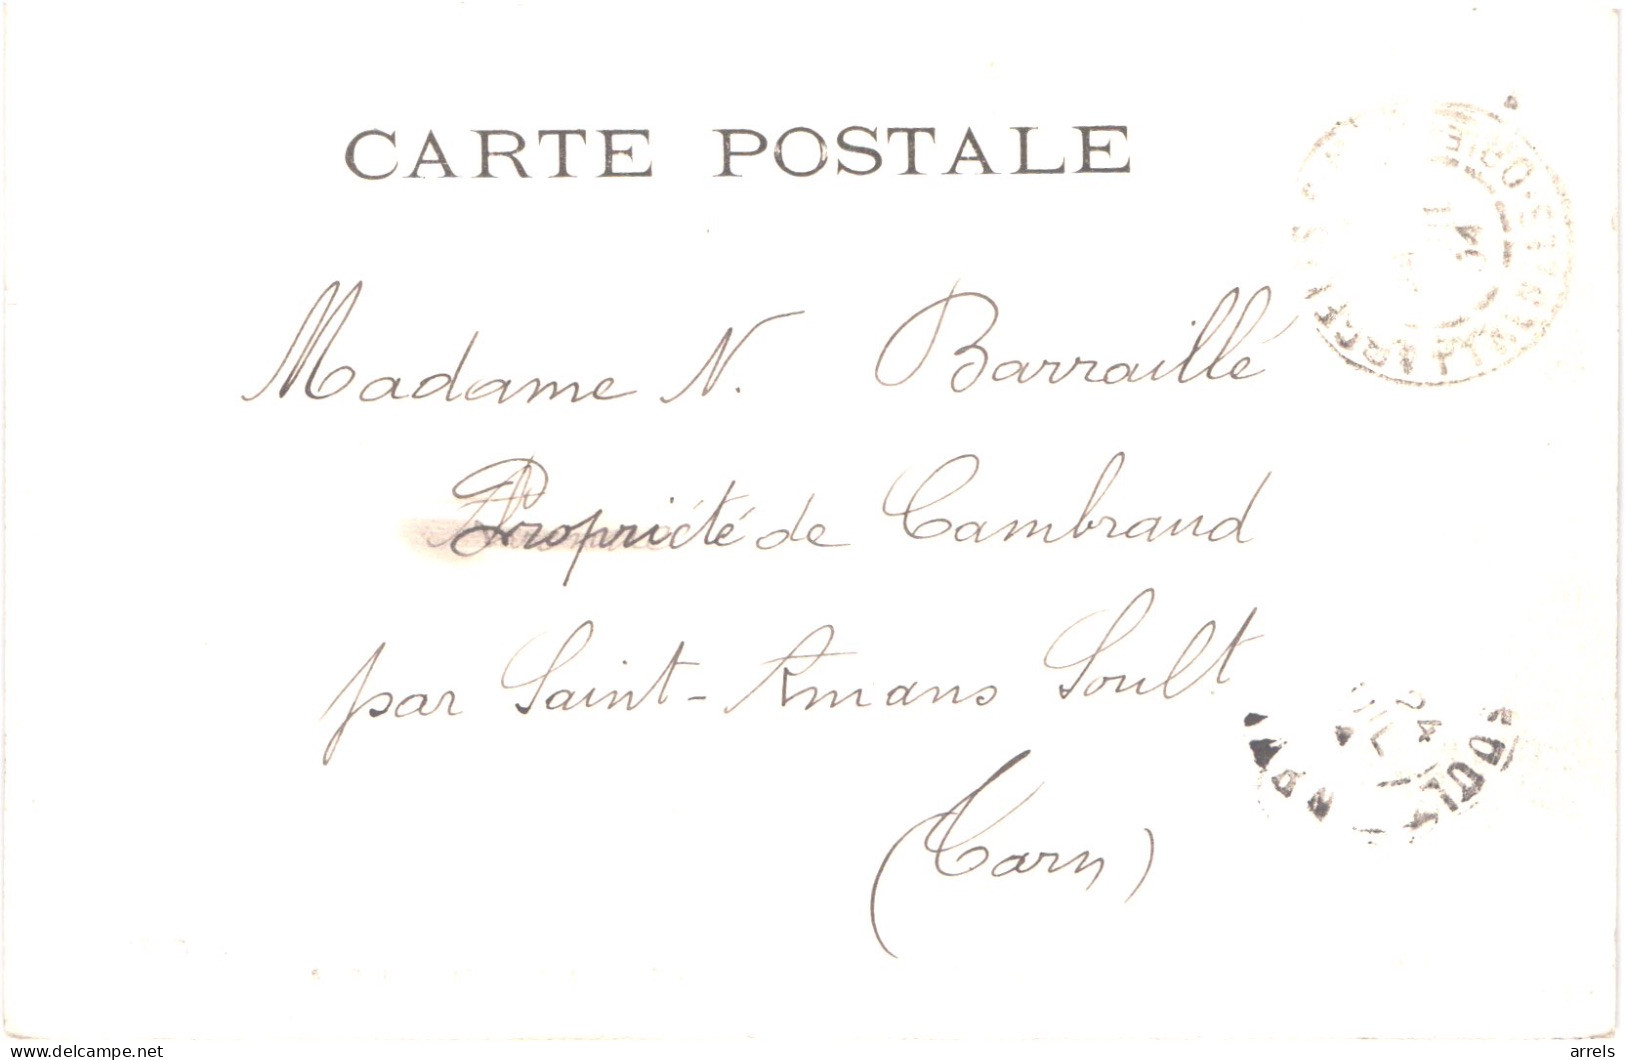 CARTE POSTALE
Madame N. Barraillé
Propriété de Cambraud
par Saint-Amans Soult
(Tarn)
www.delcampe.net
arrels